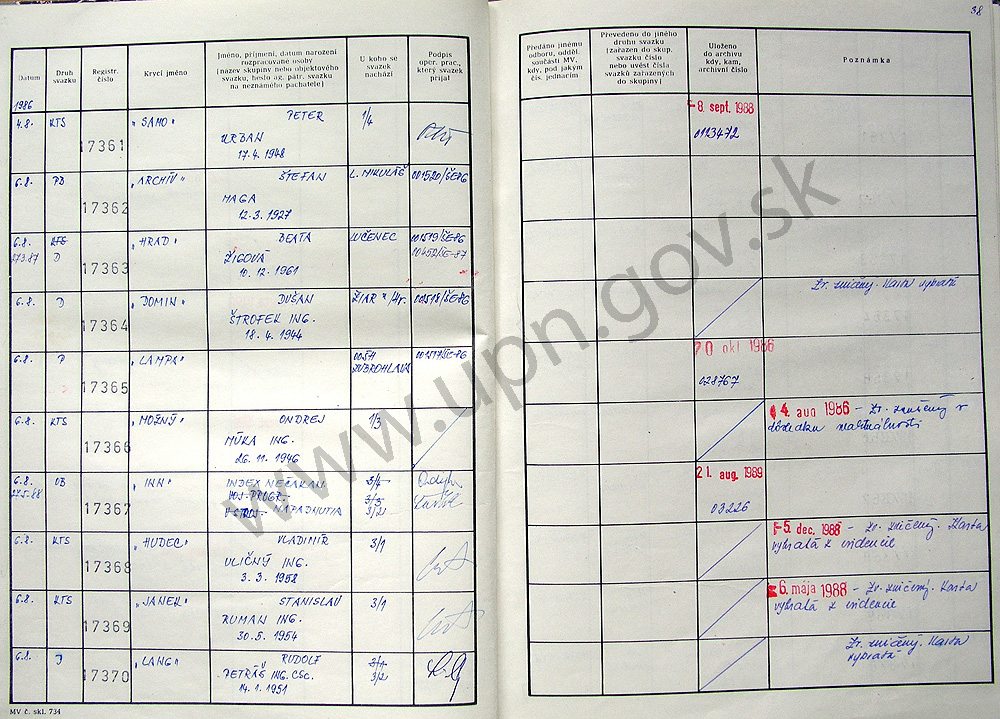 38
Datum
Druh svazku
Registr. číslo
Krycí jméno
Jméno, příjmení, datum narození
rozpracované osoby
(název skupiny nebo objektového
svazku, heslo ag. pátr. svazku
na neznámého pachatele)
U koho se
svazek
nachází
Podpis
oper. prac.,
který svazek
přijal
Předáno jinému
odboru, odděl.
součásti MV,
kdy, pod jakým
čís. jednacím
Převedeno do jiného
druhu svazku
(zařazen do skup.
svazku číslo
nebo uvést čísla
svazků zařazených
do skupiny)
Uloženo
do archivu
kdy, kam,
archivní číslo
Poznámka
1986
4.8. KTS 17361 "SAMO" PETER 1/4
URBAN
17.4. 1948
-8. sept. 1988
0123472
6.8. PD 17362 "ARCHÍV" ŠTEFAN L. MIKULÁŠ 001520/ŠE-86
MAGA
12.3. 1927
6.8. KTS 17363 "HRAD" BEATA LUČENEC 001519/ŠE-86
D ŽIGOVÁ
10.12. 1961
6.8. D 17364 "DOMIN" DUŠAN ŽIAR n/Hr. 001518/ŠE-86
ŠTROFEK ING.
18.4. 1944
Zv. zničený. Karta vybratá
6.8. P 17365 "LAMPA" 001517/ŠE-86
20 okt 1986
028767
6.8. KTS 17366 "MOŽNÝ" ONDREJ 1/3
MÚKA ING.
26.11. 1946
14. aug 1986 - Zv. zničený v
dôsledku neaktuálnosti
6.8. OB 17367 "INN" INDEX NEČAKAN. 3/4
VOJ-PROGR. 3/3
NAPADNUTIA 3/2
21. aug. 1989
03226
6.8. KTS 17368 "HUDEC" VLADIMÍR 3/1
ULIČNÝ ING.
3.3. 1958
-5. dec. 1988 - Zv. zničený. Karta
vybratá z evidencie
6.8. KTS 17369 "JANEK" STANISLAV 3/1
RUMAN ING.
30.5. 1954
6. mája 1988 - Zv. zničený. Karta
vybratá z evidencie
6.8. D 17370 "LANG" RUDOLF 3/1
PETRÁŠ ING. CSC. 3/2
14.1. 1951
Zv. zničený. Karta
vybratá
MV č. skl. 734
www.upn.gov.sk